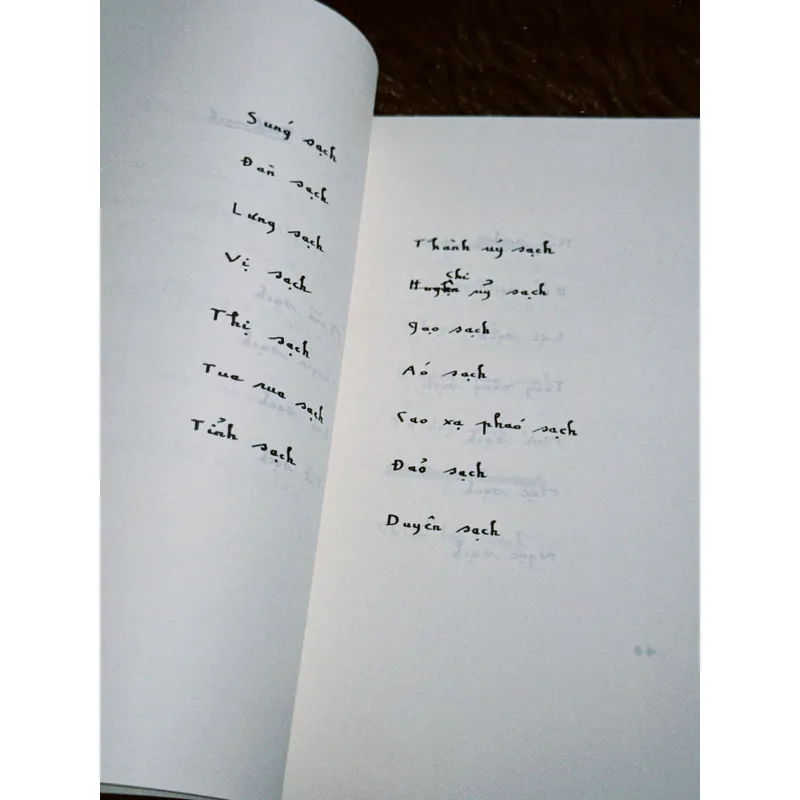 Súng sạch
Đạn sạch
Lưng sạch
Vị sạch
Thị sạch
Tua rua sạch
Tỉnh sạch
Thành uỷ sạch
Chi
uỷ sạch
Gạo sạch
Áo sạch
Cao xạ pháo sạch
Đảo sạch
Duyên sạch